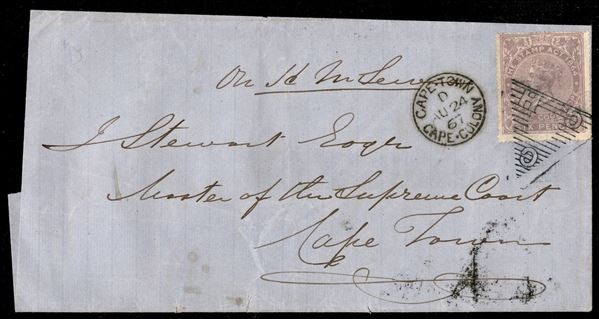 On H M Serv
STAMP ACT 1864
CAPE-TOWN
D
JU 24
67
CAPE-COLONY
J Stewart Esqr
Master of the Supreme Court
Cape Town